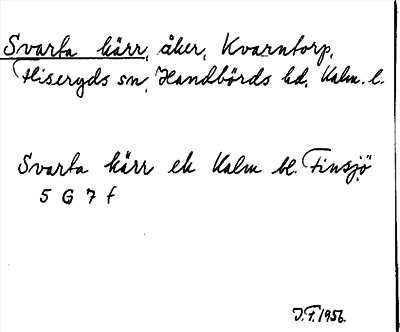 Svarta kärr, åker, Kvarntorp,
Fliseryds sn, Handbörds hd, Kalm. l.
Svarta kärr ek Kalm bl. Finsjö
5 G 7 f
J.F. 1956.